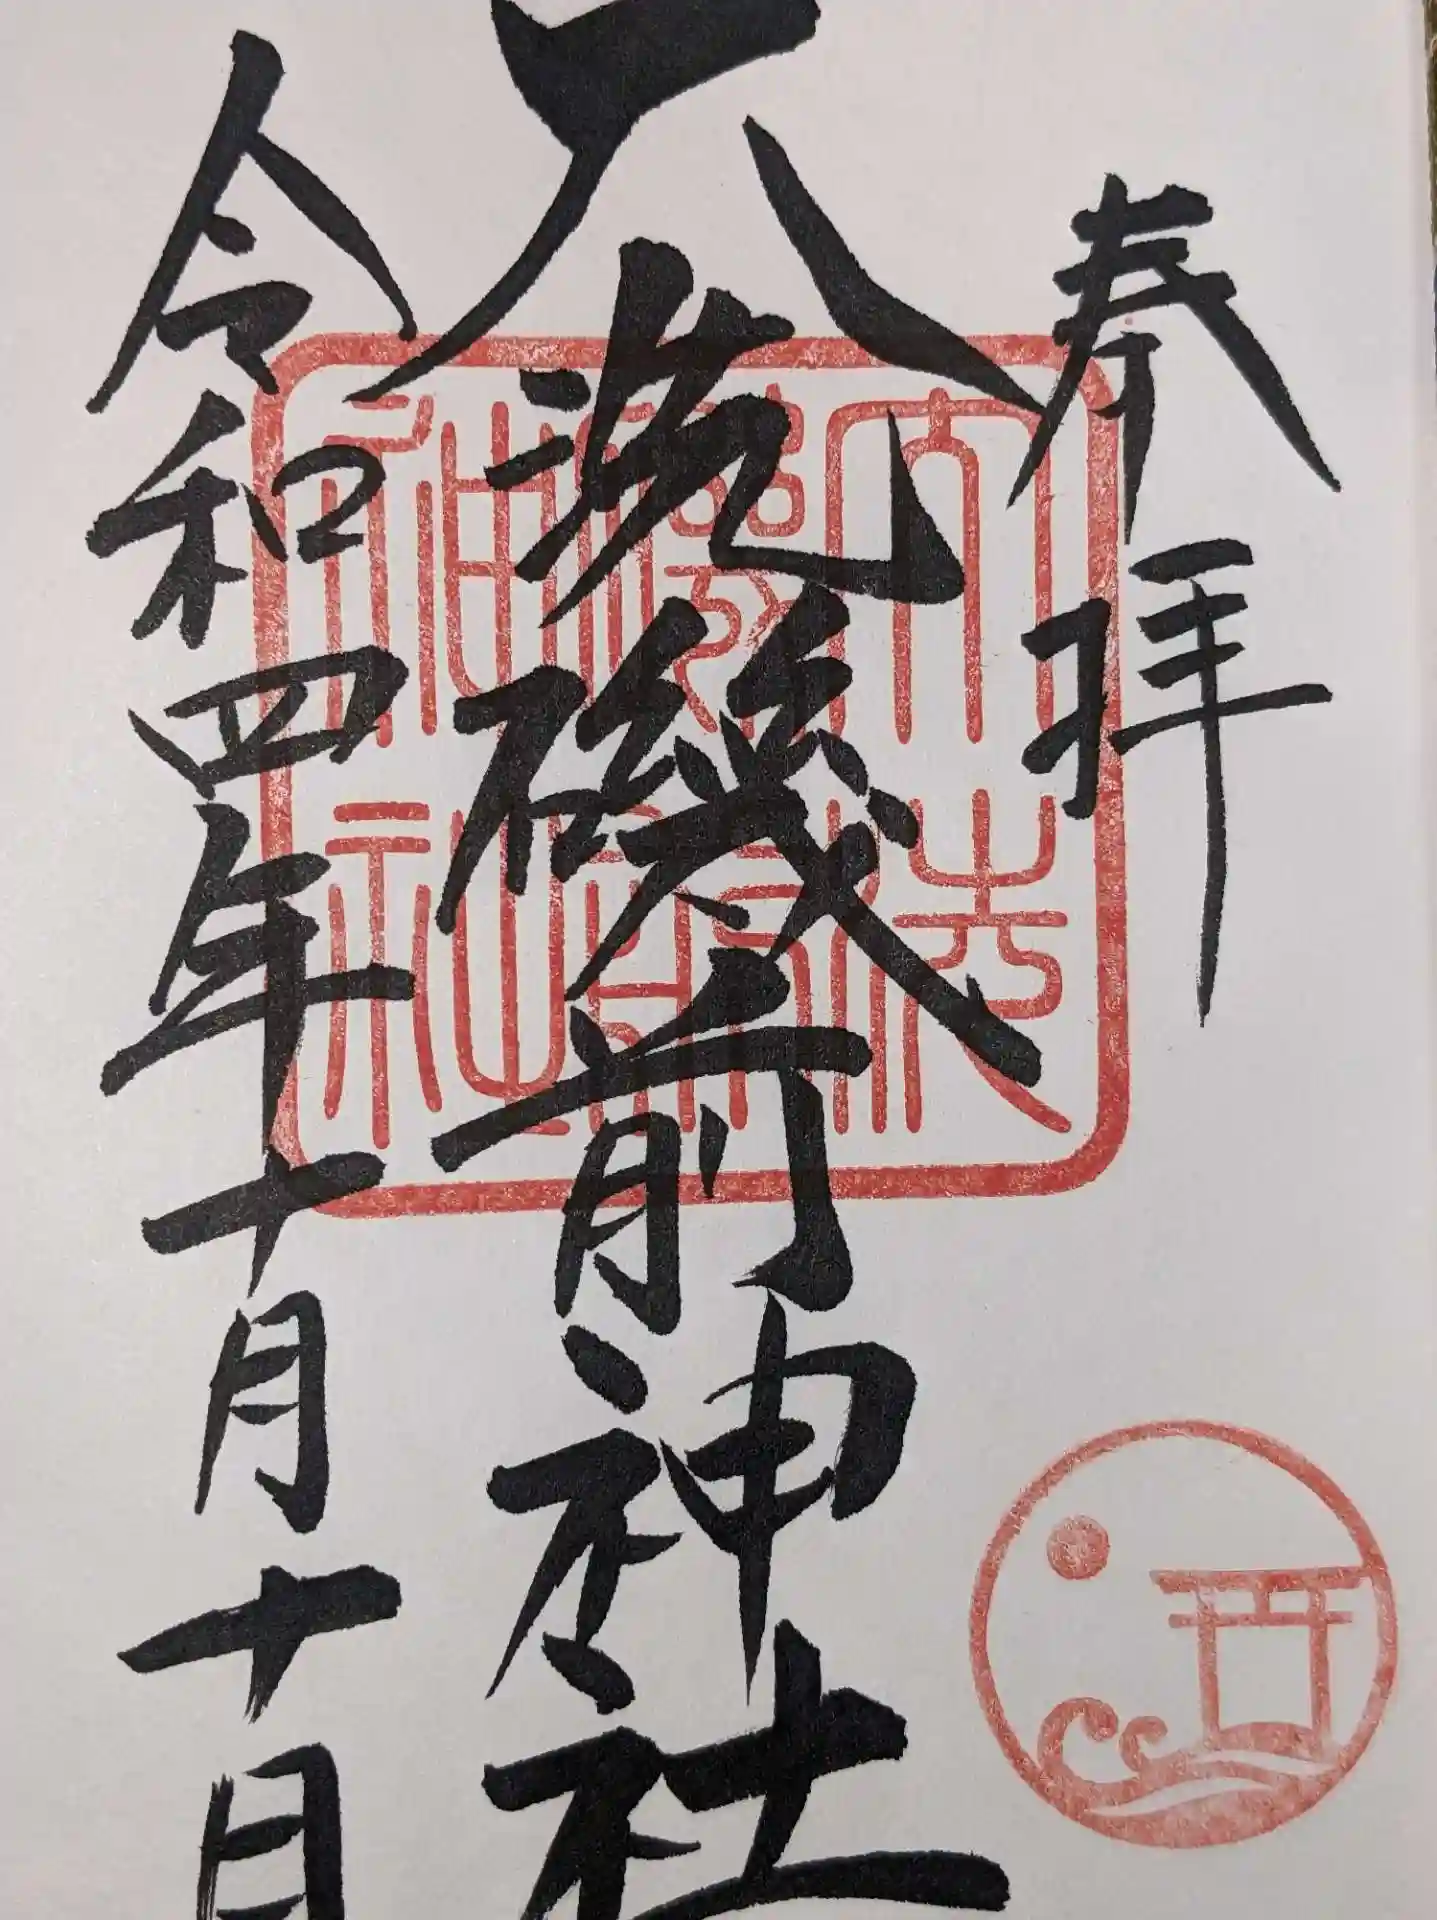 奉拝
大洗磯前神社
令和四年十月十日
大洗磯前神社